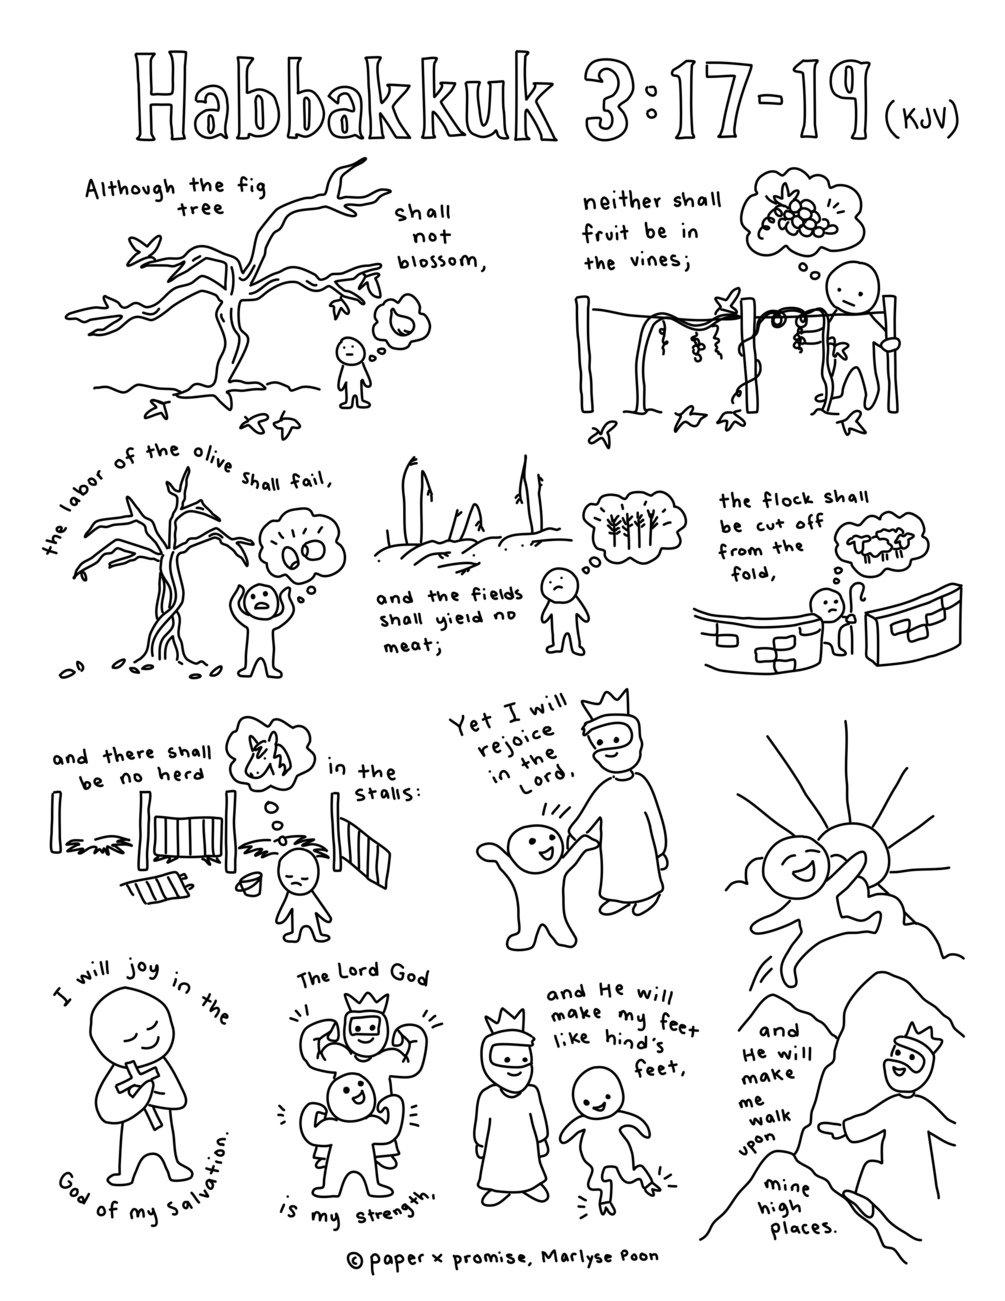 Habbakkuk 3:17-19 (KJV)
Although the fig
tree
shall
not
blossom,
neither shall
fruit be in
the vines;
the labor of the olive shall fail,
and the fields
shall yield no
meat;
the flock shall
be cut off
from the
fold,
and there shall
be no herd
in the
stalls:
Yet I will
rejoice
in the
Lord,
I will joy in the
God of my salvation.
The Lord God
is my strength,
and He will
make my feet
like hind's
feet,
and
He will
make
me
walk
upon
mine
high
places.
© paper x promise, Marlyse Poon